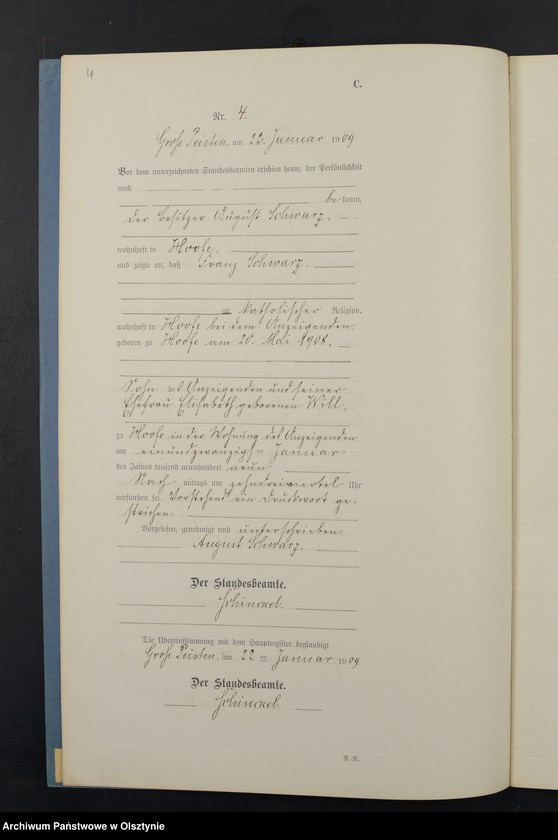 4
C.
Nr. 4.
Groß Peisten, am 22. Januar 1909.
Vor dem unterzeichneten Standesbeamten erschien heute, der Persönlichkeit
nach
be kannt,
der Besitzer August Schwarz,
wohnhaft in Hoofe,
und zeigte an, daß Franz Schwarz,
alt, katholischer Religion,
wohnhaft in Hoofe bei dem Anzeigenden,
geboren zu Hoofe am 20. Mai 1908,
Sohn des Anzeigenden und seiner
Ehefrau Elisabeth geborenen Will,
zu Hoofe in der Wohnung des Anzeigenden
am einundzwanzigsten Januar
des Jahres tausend neunhundert neun
Nach mittags um zehndreiviertel Uhr
verstorben sei. Vorstehend ein Druckwort ge-
strichen.
Vorgelesen, genehmigt und unterschrieben.
August Schwarz.
Der Standesbeamte.
Schinckel.
Die Übereinstimmung mit dem Hauptregister beglaubigt
Groß Peisten, am 22 ten Januar 1909
Der Standesbeamte.
Schinckel.
Archiwum Państwowe w Olsztynie